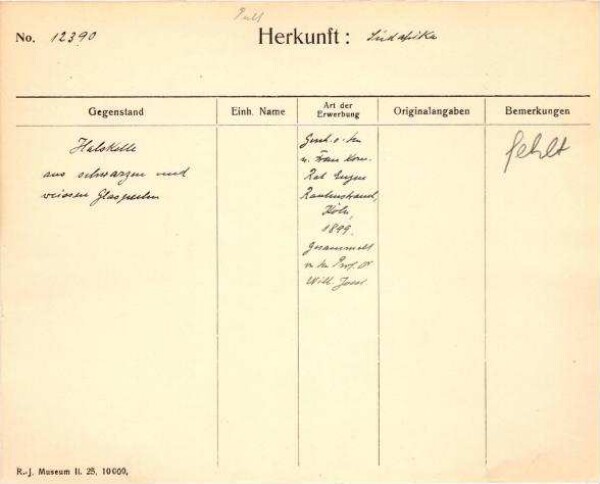 No. 12390
Herkunft: Südafrika
Gegenstand
Einh. Name
Art der Erwerbung
Originalangaben
Bemerkungen
Halskette
aus schwarzen und
weissen Glasperlen
Gesch. v. Hn
u. Frau Kom.
Rat Eugen
Rautenstrauch,
Köln,
1899.
Gesammelt
v. Hn Prof. Dr
Wilh. Joest
fehlt
R.-J. Museum II. 25, 10000,